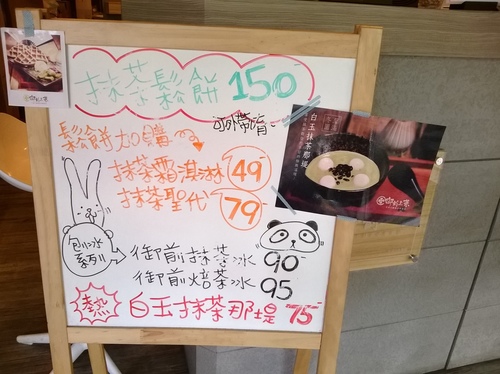 抹茶鬆餅 150
可外帶唷
鬆餅加購
抹茶霜淇淋 49
抹茶聖代 79
刨冰系列
御前抹茶冰 90
御前焙茶冰 95
熱 白玉抹茶那堤 75
白玉抹茶那堤